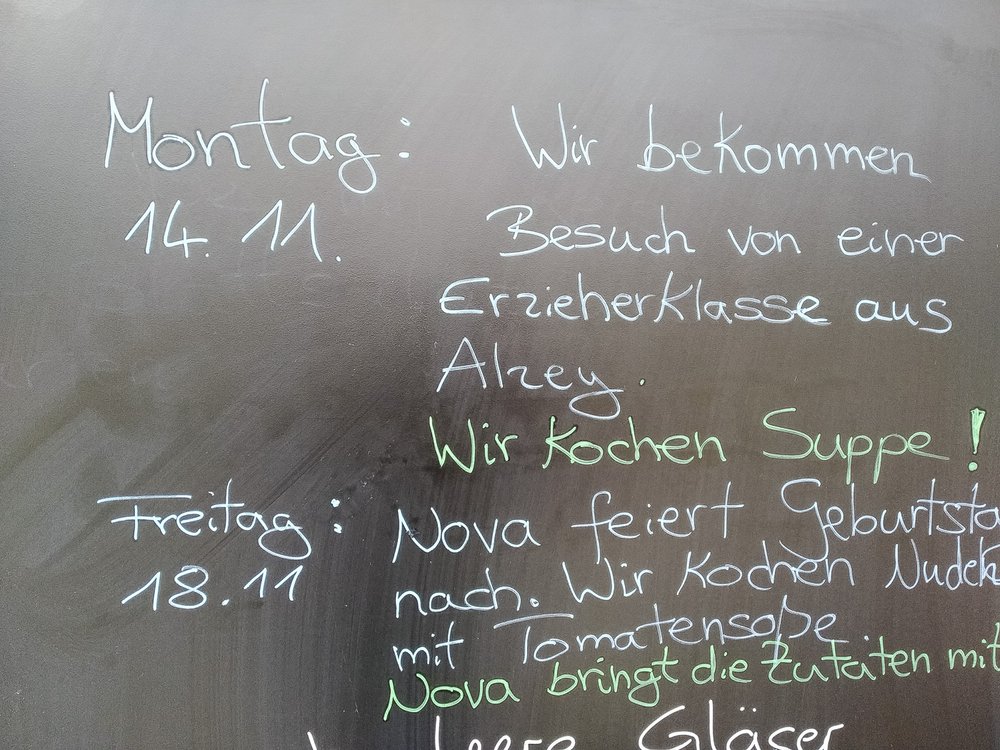 Montag: Wir bekommen
14. 11. Besuch von einer
Erzieherklasse aus
Alzey.
Wir kochen Suppe!
Freitag: Nova feiert Geburtsta
18.11 nach. Wir kochen Nudel
mit Tomatensoße
Nova bringt die Zutaten mit
leere Gläser